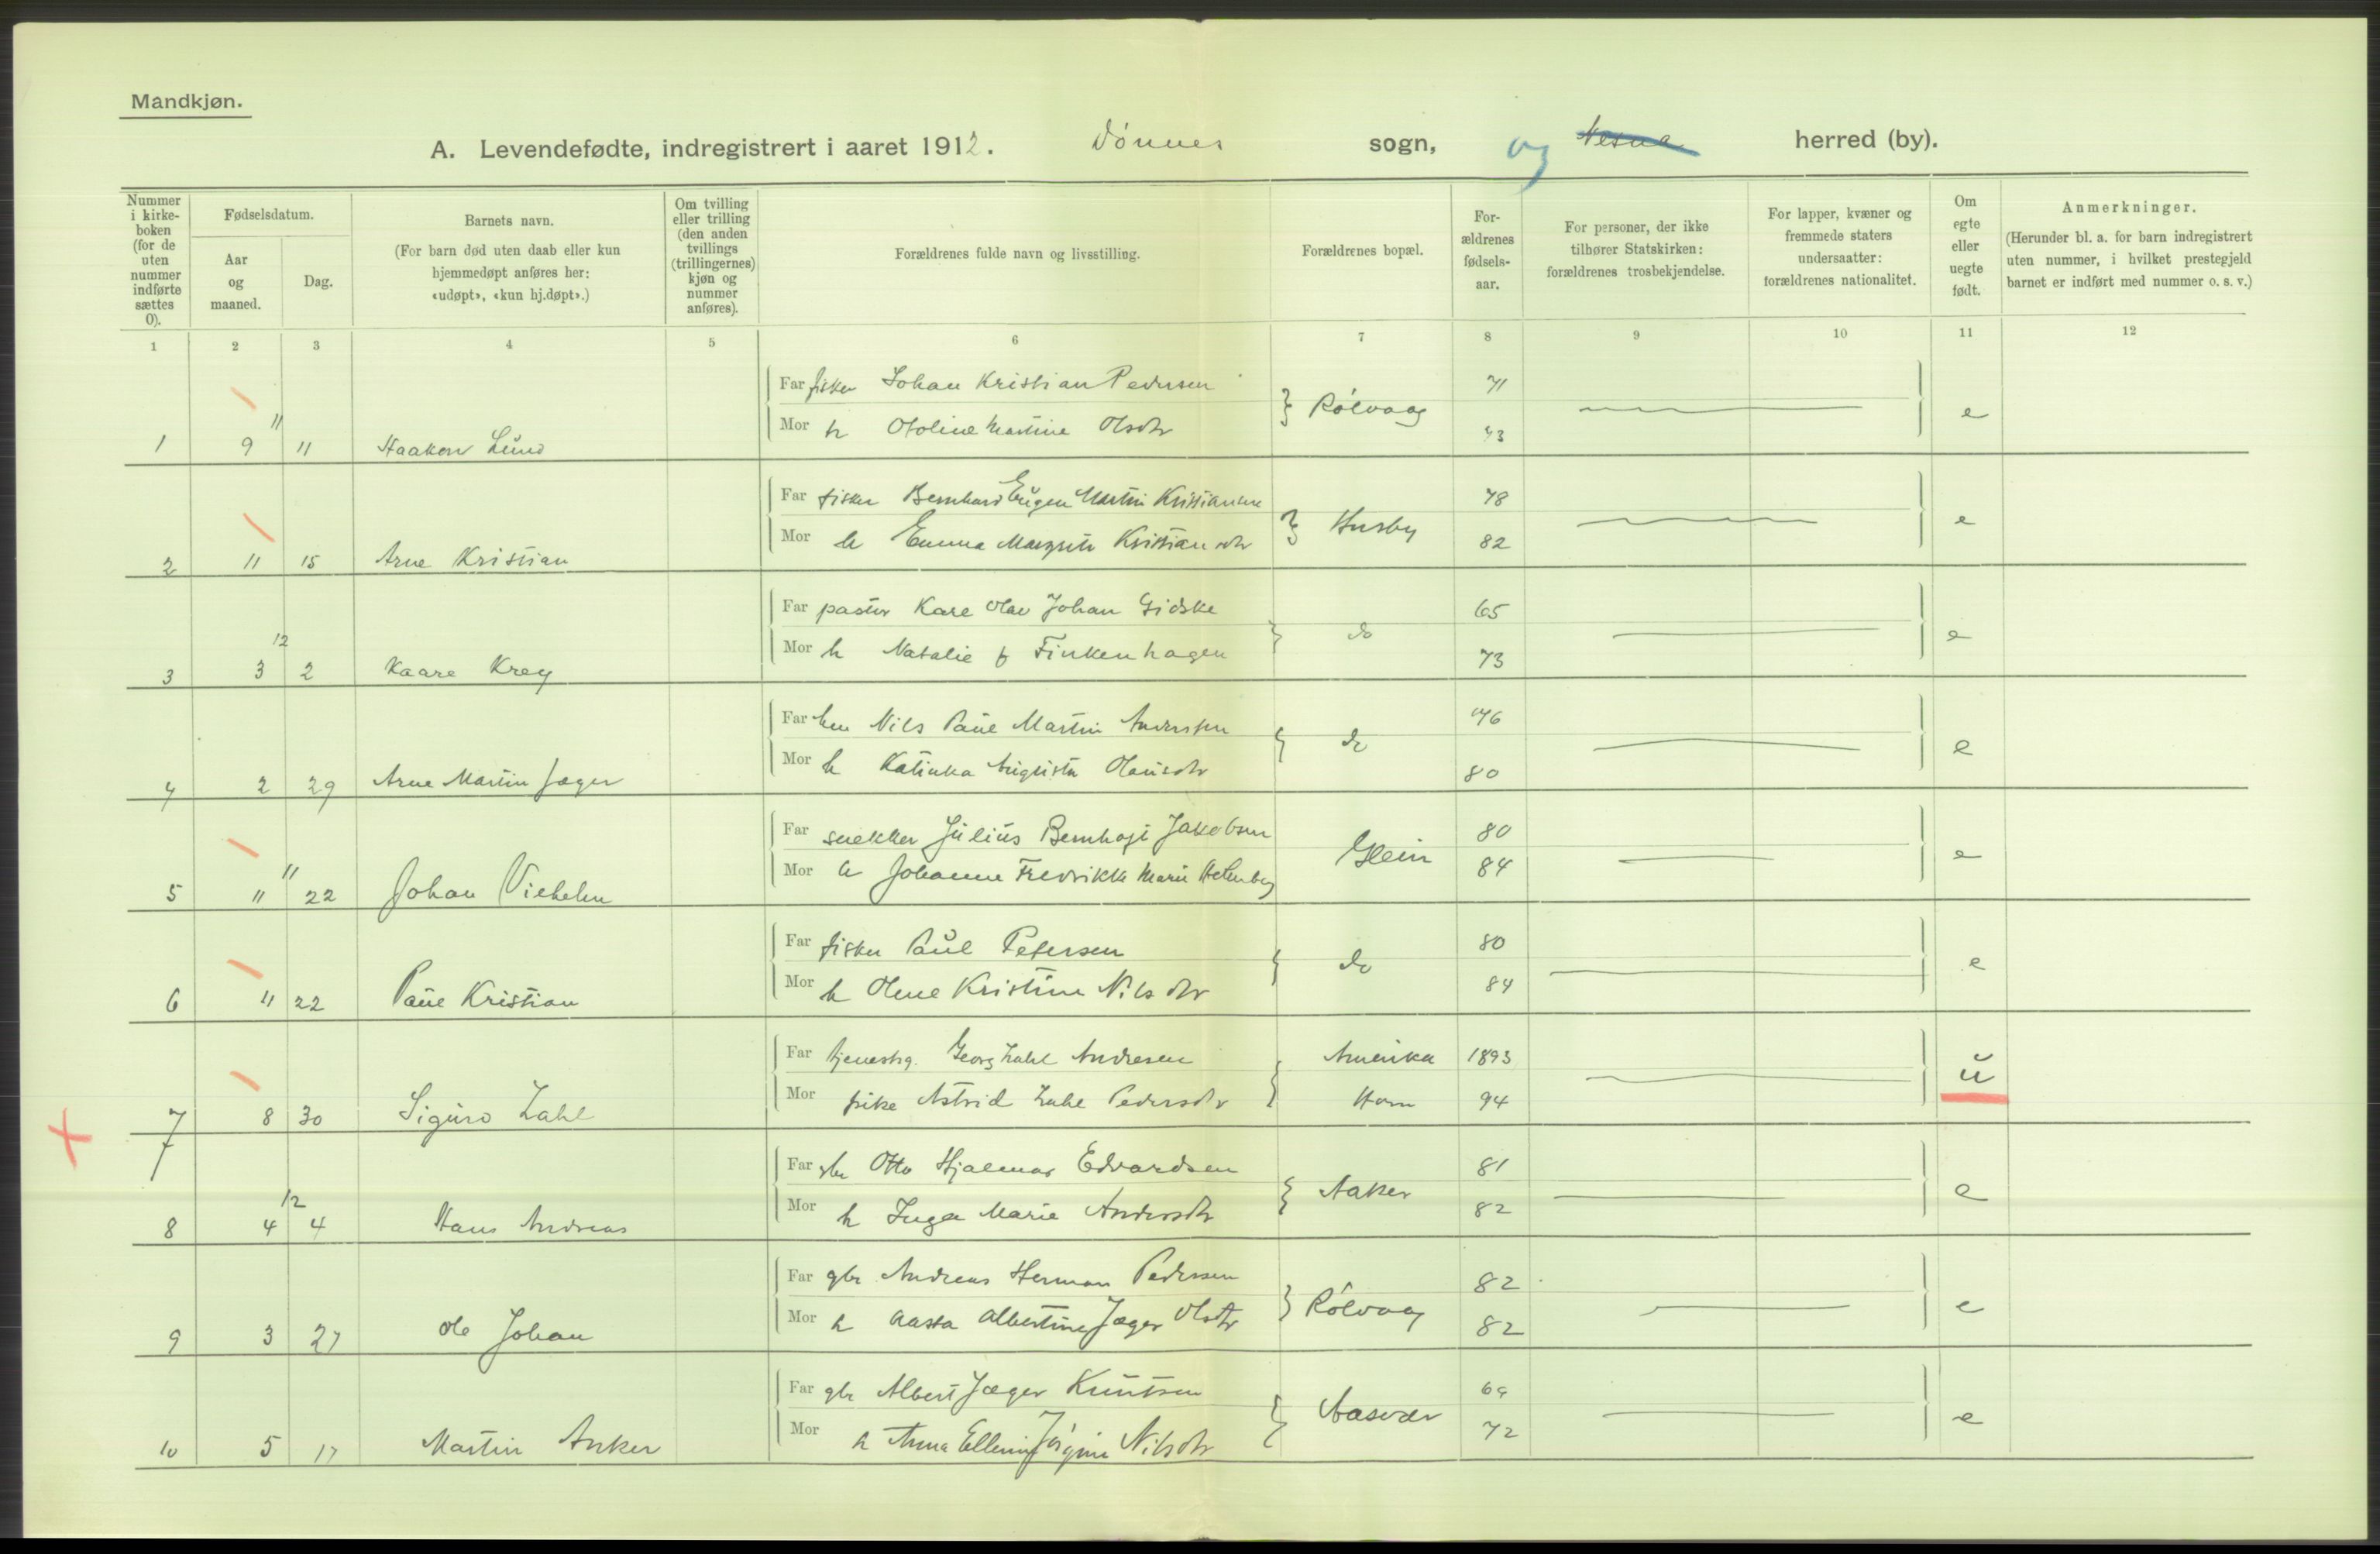 Mandkjøn.
A. Levendefødte, indregistrert i aaret 1912. Dønnes sogn, og Nesna herred (by).
Nummer i kirke-boken (for de uten nummer indførte sættes 0).
Fødselsdatum.
Aar og maaned.
Dag.
Barnets navn.
(For barn død uten daab eller kun hjemmedøpt anføres her: «udøpt», «kun hj.døpt».)
Om tvilling eller trilling (den anden tvillings (trillingernes) kjøn og nummer anføres).
Forældrenes fulde navn og livsstilling.
Forældrenes bopæl.
For-ældrenes fødsels-aar.
For personer, der ikke tilhører Statskirken: forældrenes trosbekjendelse.
For lapper, kvæner og fremmede staters undersaatter: forældrenes nationalitet.
Om egte eller uegte født.
Anmerkninger.
(Herunder bl. a. for barn indregistrert uten nummer, i hvilket prestegjeld barnet er indført med nummer o. s. v.)
1 2 3 4 5 6 7 8 9 10 11 12
Far fisker Johan Kristian Pedersen 71
Mor h Otoline Martine Olsdtr } Rölvaag 73 e
1 11 9 11 Haakon Lund
Far fisker Bernhard Eugen Martin Kristiansen 78
Mor h Emma Margrete Kristiansdtr } Husby 82 e
2 11 15 Arne Kristian
Far pastor Karl Olav Johan Gidske 65
Mor h Natalie f Finkenhagen } do 73 e
3 12 3 2 Kaare Krey
Far Nils Paul Martin Anderssen 76
Mor h Katinka Augusta Olausdtr } do 80 e
4 2 29 Arne Martin Jæger
Far snekker Julius Bernhoft Jakobsen 80
Mor h Johanne Fredrikke Marie Glein 84 e
5 11 11 22 Johan Vilhelm
Far fisker Paul Petersen 80
Mor h Oline Kristine Nilsdtr } do 84 e
6 11 22 Paul Kristian
Far tjenestg. Georg Zahl Andresen Amerika 1893
Mor pike Astrid Zahl Pedersdtr } Horn 94 u
7 8 30 Sigurd Zahl
7
Far Otto Hjalmar Edvardsen 81
Mor h Inga Marie Andersdtr } Aaker 82 e
8 12 4 4 Hans Andreas
Far gbr Andreas Herman Pederssen 82
Mor h Aasta Albertine Jæger Olsdtr } Rölvaag 82 e
9 3 27 Ole Johan
Far gbr Albert Jæger Knutsen 69
Mor h Anna Elling Jörgine Nilsdtr } Aasvær 72 e
10 5 17 Martin Anker